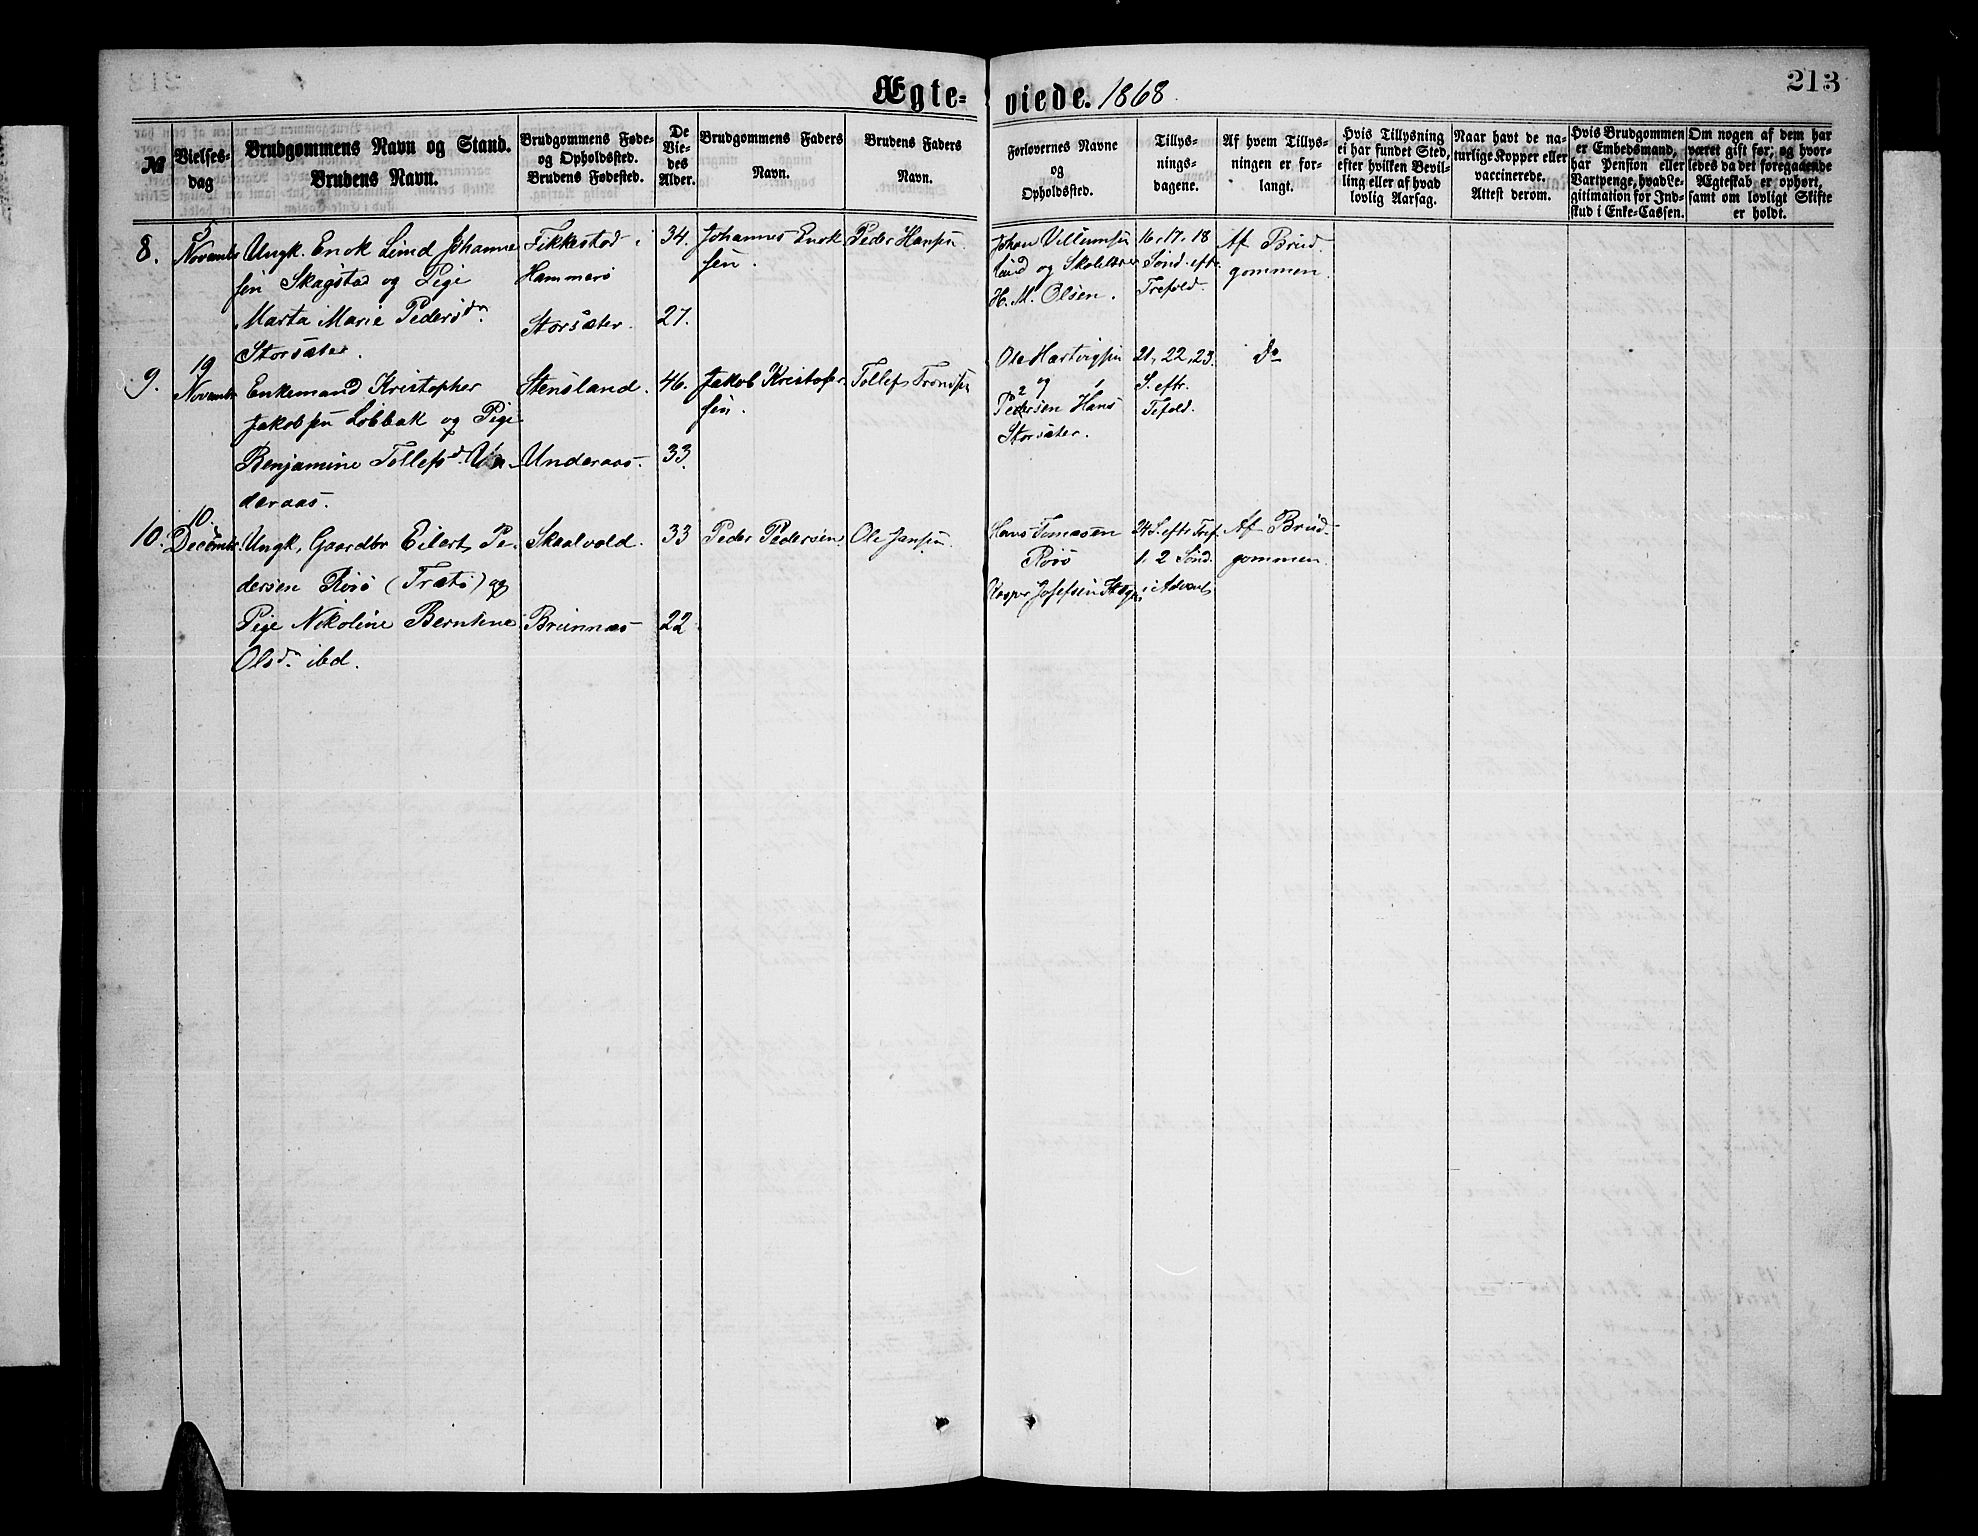 Ægte-
viede. 1868.
213
No
Vielses-
dag
Brudgommens Navn og Stand.
Brudens Navn.
Brudgommens Føde-
og Opholdssted.
Brudens Fødested.
De
Vie-
des
Alder.
Brudgommens Faders
Navn.
Brudens Faders
Navn.
Forlovernes Navne
og
Opholdssted.
Tillys-
nings-
dagene.
Af hvem Tillys-
ningen er for-
langt.
Hvis Tillysning
ei har fundet Sted,
efter hvilken Bevil-
ling eller af hvad
lovlig Aarsag.
Naar havt de na-
turlige Kopper eller
vaccinerede.
Attest derom.
Hvis Brudgommen
er Embedsmand,
har Pension eller
Vartpenge, hvad Le-
gitimation for Ind-
skud i Enke-Cassen.
Om nogen af dem har
været gift før; og hvor-
ledes da det foregaaende
Ægteskab er ophørt,
samt om lovligt Skifte
er holdt.
8.
5
Novembr
Ungk. Enok Lind Johanne
sen Skagstad og Pige
Marta Marie Pedersdr.
Storsæter.
Fikkestad i
Hammerø
Storsæter.
34.
27.
Johannes Enok
sen.
Peder Hansen
Johan Villumsen
og Skolelærer
H. M. Olsen.
16. 17. 18
Sønd. eftr.
Trefold.
Af Brud-
gommen.
9.
19
Novembr
Enkemand Kristopher
Jakobsen Løbbak og Pige
Benjamine Tollefsd. Un-
deraas.
Stensland.
Underaas.
46.
33.
Jakob Kristofer
sen.
Tollef Tronsen
Ole Hartvigsen
og
Pedersen Hans
Storsæter.
21, 22, 23.
S. eftr.
Tefold.
Do
10.
10.
Decembr.
Ungk, Gaardbr Eilert Pe-
dersen Rörö (Trætö) og
Pige Nikoline Berntine
Olsdr. ibd.
Skaalvold.
Brunnæs
33
22
Peder Pedersen.
Ole Jansen
Hans Tomasen
Rörö
Kasper Josefsen
24 S. eftr Tref.
1. 2 Sønd.
i Advent
Af Brud-
gommen.